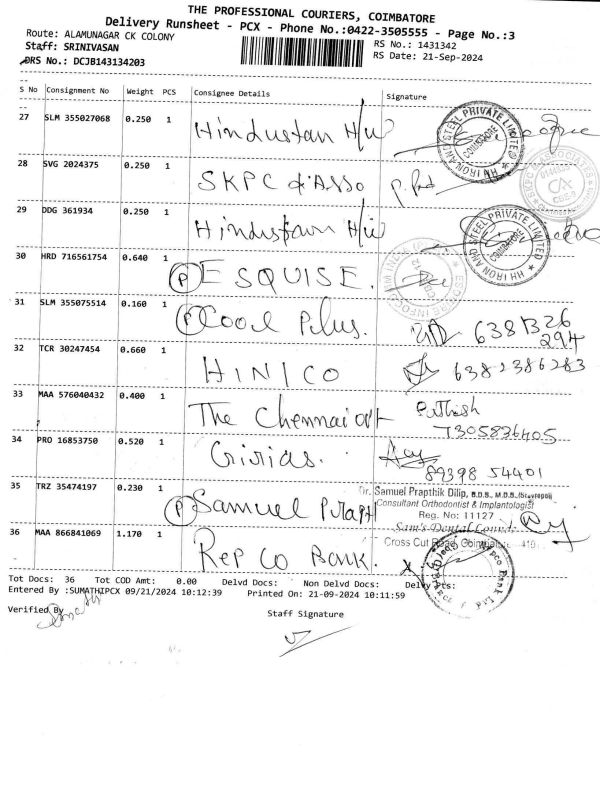 THE PROFESSIONAL COURIERS, COIMBATORE
Delivery Runsheet - PCX - Phone No.:0422-3505555 - Page No.:3
Route: ALAMUNAGAR CK COLONY
RS No.: 1431342
Staff: SRINIVASAN
RS Date: 21-Sep-2024
DRS No.: DCJB143134203
S No Consignment No Weight PCS Consignee Details Signature
27 SLM 355027068 0.250 1 Hindustan H/w
HH IRON AND STEEL PRIVATE LIMITED COIMBATORE
28 SVG 2024375 0.250 1 SKPC & Asso
CA
29 DDG 361934 0.250 1 Hindustan H/w
HH IRON AND STEEL PRIVATE LIMITED COIMBATORE
30 HRD 716561754 0.640 1 (P) ESQUISE.
31 SLM 355075514 0.160 1 (P) Cool Plus. 6381326
294
32 TCR 30247454 0.660 1 HINICO 6382386283
33 MAA 576040432 0.400 1 The Chennai
7305836405
34 PRO 16853750 0.520 1 Girias.
89398 54401
35 TRZ 35474197 0.230 1 (P) Samuel
Dr. Samuel Prapthik Dilip, B.D.S., M.D.S.
Consultant Orthodontist & Implantologist
Reg. No: 11127
Sam's Dental
Cross Cut Road, Coimbatore
36 MAA 866841069 1.170 1 Repco Bank.
Tot Docs: 36 Tot COD Amt: 0.00 Delvd Docs: Non Delvd Docs: Delvy Pts:
Entered By :SUMATHIPCX 09/21/2024 10:12:39 Printed On: 21-09-2024 10:11:59
Verified By
Staff Signature